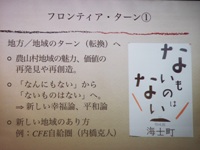 フロンティア・ターン①
地方/地域のターン(転換)へ
● 農山村地域の魅力、価値の
再発見や再創造。
● 「なんにもない」から
「ないものはない」へ。
⇒新しい幸福論、平和論
● 新しい地域のあり方
例:CFE自給圏(内橋克人)
ないものはない
海士町